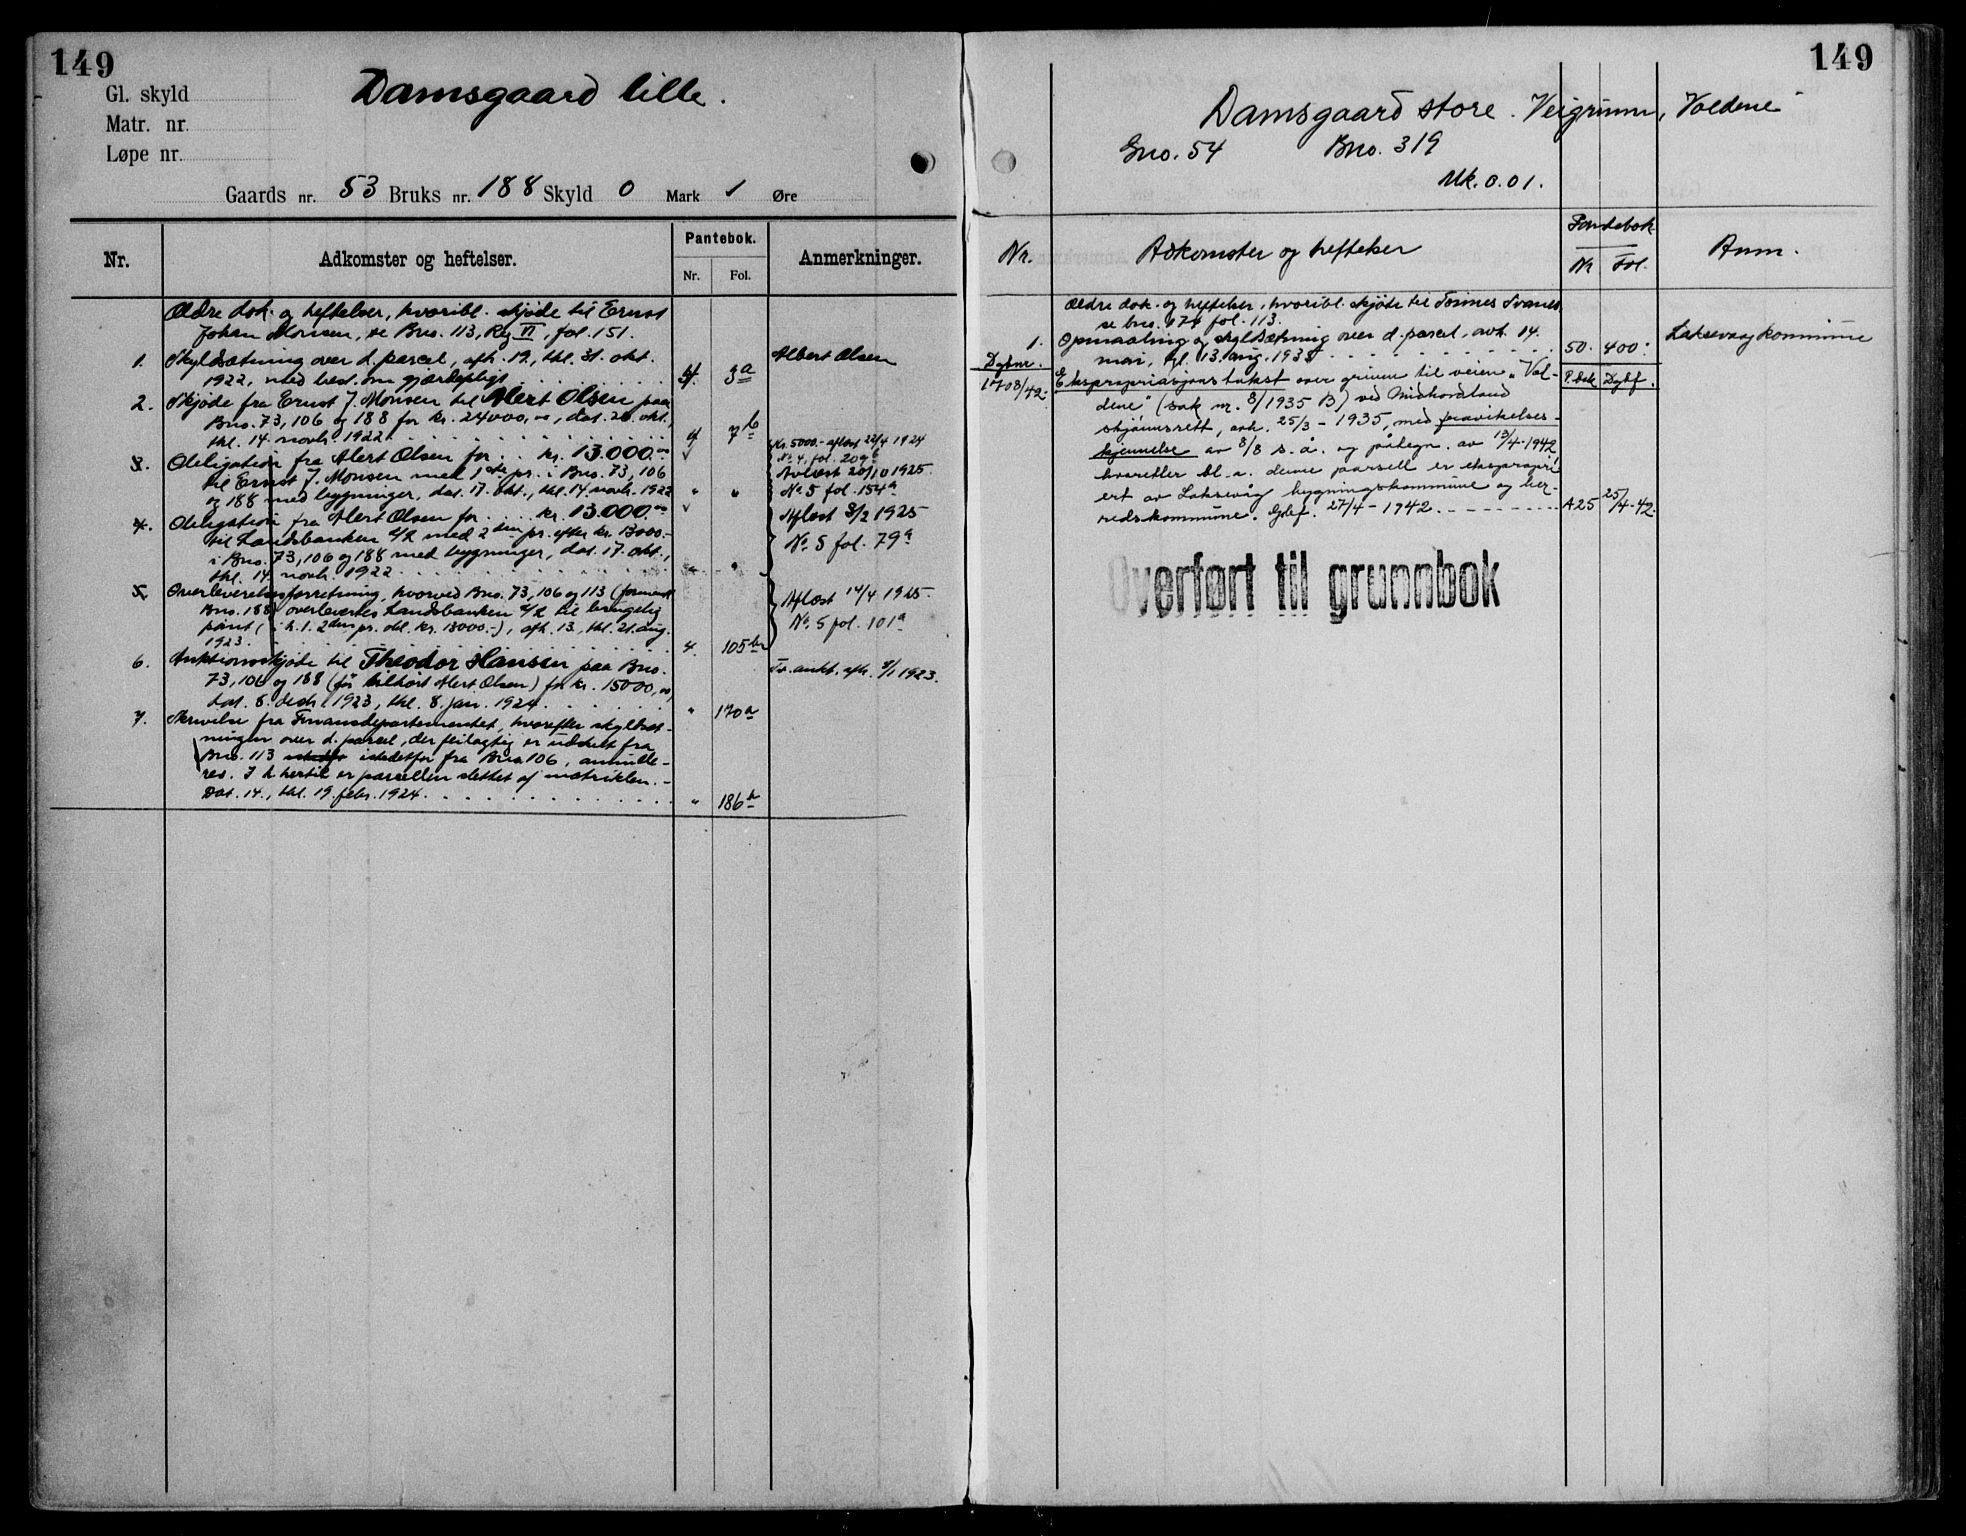 149
Gl. skyld
Matr. nr.
Løpe nr.
Damsgaard lille.
Gaards nr. 53 Bruks nr. 188 Skyld 0 Mark 1 Øre
Nr. Adkomster og heftelser. Pantebok. Anmerkninger.
Nr. Fol.
Ældre dok. og heftelser, hvoribl. skjøde til Ernst
Johan Monsen, se Bno. 113, Reg VI, fol. 151.
1. Skyldsætning over d. parcel, afh. 19, thl. 31. okt. Albert Olsen
1922, med best. om gjærdepligt 4. 3a
2. Skjøde fra Ernst J. Monsen til Albert Olsen paa
Bno. 73, 106 og 188 for kr. 24000,00, dat. 20. okt.,
thl. 14. novbr. 1922 4 7b
3. Obligation fra Albert Olsen for . . kr. 13.000.00 Kr. 5000.- aflæst 22/4 1924
No 4, fol. 209b
til Ernst J. Monsen med 1ste pr. i Bno. 73, 106 Avlæst 20/10 1925.
og 188 med bygninger, dat. 17. okt., thl. 14 novbr. 1922 " " No 5 fol. 154a
4. Obligation fra Albert Olsen for . . kr. 13.000.00 Aflæst 3/2 1925
til Landsbanken A/S med 2den pr. efter kr. 13000.- No 5 fol. 79a
i Bno. 73, 106 og 188 med bygninger, dat. 17. okt.,
thl. 14 novbr. 1922
5. Overleverelsesforretning, hvorved Bno. 73, 106 og 113 (formentl.
Bno. 188) overleveres Landsbanken A/S til brugelig Aflæst 14/4 1925.
pant (i h. t. 2den pr. obl. kr. 13000.-), afh. 13., thl. 21. aug. No 5 fol. 101a
1923 4. 105b
6. Auktionsskjøde til Theodor Hansen paa Bno. Tv. aukt. afh. 9/1 1923.
73, 106 og 188 (før tilhørt Albert Olsen) for kr. 15000,00
dat. 8. decbr. 1923, thl. 8. jan. 1924 " 170a
7. Skrivelse fra Finansdepartementet, hvorefter skyldsæt-
ningen over d. parcel, der feilagtig er uddelt fra
Bno. 113 istedetfor fra Bno 106, annulle-
res. I h hertil er parcellen slettet af matriklen.-
Dat. 14., thl. 19. febr. 1924. " 186b
149
Damsgaard store. Veigrunn, "Voldene"
Gno. 54 Bno. 319
Mk. 0.01.
Nr. Adkomster og heftelser Pandebok Anm.
Nr Fol.
Ældre dok. og heftelser, hvoribl. skjøte til Tørines Svanes
se bno. 174 fol. 113.
1. Opmaaling og skyldsætning over d. parcel, avh. 14.
mai, tgl. 13. aug. 1935 50. 400. Laksevaag kommune
Dgbnr.
1708/42. Ekspropriasjonstakst over grunn til veien "Vol- P.bok Dgbf.
dene" (sak nr. 8/1935 B) ved Midhordland
skjønnsrett, avh. 25/3 - 1935, med fravikelses-
kjennelse av 8/8 s. å. og påtegn. av 13/4-1942,
hvoretter bl. a. denne parsell er ekspropri-
ert av Laksevåg bygningskommune og her-
redskommune. Gbf. 27/4 - 1942 A25 25/4-42.
Overført til grunnbok